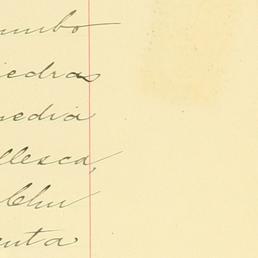 umbo
iedras
media
llesca,
Chu
enta